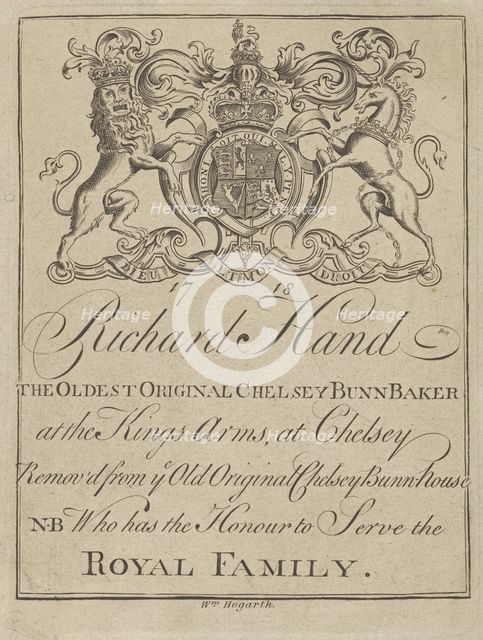 HONI SOIT QUI MAL Y PEN
DIEU ET MON DROIT
17 18
Richard Hand
THE OLDEST ORIGINAL CHELSEY BUNN BAKER
at the Kings Arms, at Chelsey
Remov'd from yͤ Old Original Chelsey Bunn-house
N·B Who has the Honour to Serve the
ROYAL FAMILY.
Wᵐ Hogarth.
Heritage
Heritage
Heritage
Heritage
Heritage
Heritage
Heritage
Heritage